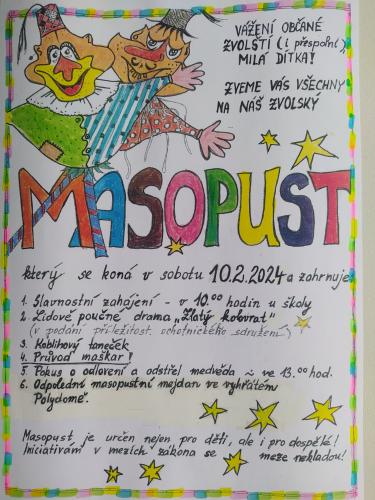 VÁŽENÍ OBČANÉ
ZVOLŠTÍ (i přespolní),
MILÁ DÍTKA!
ZVEME VÁS VŠECHNY
NA NÁŠ ZVOLSKÝ
MASOPUST
který se koná v sobotu 10.2.2024 a zahrnuje
1. Slavnostní zahájení - v 10.00 hodin u školy
2. Lidové poučné drama „Zlatý kolovrat"
(v podání příležitost. ochotnického sdružení)
3. Koblihový taneček
4. Průvod maškar!
5. Pokus o odlovení a odstřel medvěda ~ ve 13.00 hod.
6. Odpolední masopustní mejdan ve vyhřátém
Polydomě.
Masopust je určen nejen pro děti, ale i pro dospělé!
Iniciativám v mezích zákona se meze nekladou!